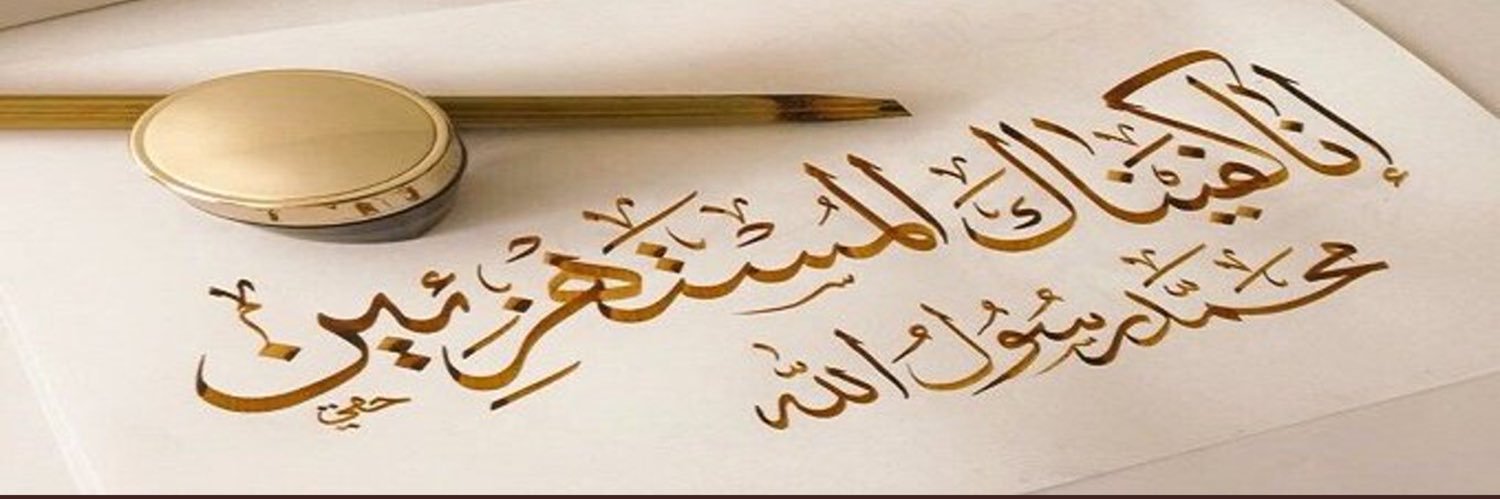 إنا كفيناك المستهزئين
محمد رسول الله
حقي